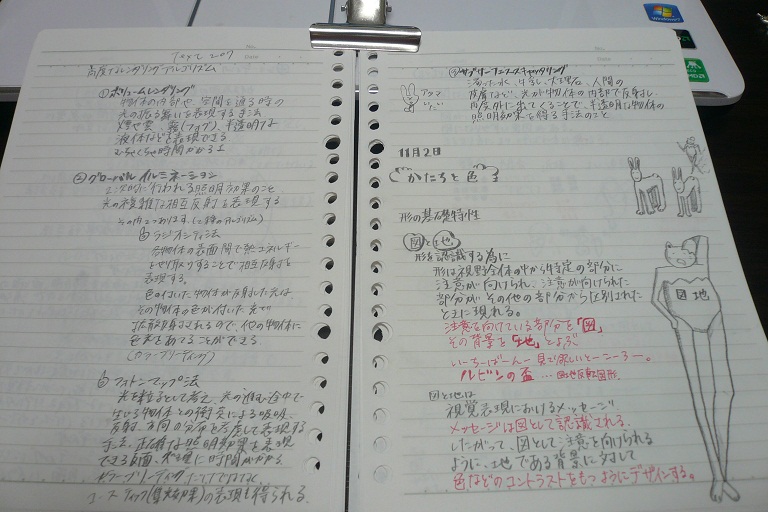 Text 207
高度なレンダリングアルゴリズム
①ボリュームレンダリング
物体の内部や、空間を通る時の
光の振る舞いを表現する手法
煙や雲、霧(フォグ)、半透明な
液体などを表現できる
むちゃくちゃ時間かかるよ
②グローバルイルミネーション
2次的に行われる照明効果のこと
光の複雑な相互反射を表現する
その内2つあげます。
ⓐラジオシティ法
各物体の表面間で熱エネルギー
をやり取りすることで相互反射を
表現する。
色の付いた物体が反射した光は
その物体の色が付いた光で
拡散反射されるので、他の物体に
色をあてることができる
(カラーブリーディング)
ⓑフォトンマップ法
光を粒子として考え、光の進む途中で
生じる物体との衝突による吸収、
反射、方向の分布を考慮して表現する
手法。正確な照明効果を表現
できる反面、処理に時間がかかる
カラーブリーディングだけではなく、
コースティック(集光効果)の表現も得られる。
③サブサーフェーススキャッタリング
大理石、人間の
皮膚など、光が物体の内部で反射し
再度外に出てくることで、半透明な物体の
照明効果を得る手法のこと
アタマ
いたい
11月2日
かたちと色
形の基礎特性
図と地
形を認識する為に
形は視野全体の中から特定の部分に
注意が向けられ、注意が向けられた
部分が、その他の部分から区別された
ときに現れる。
注意を向けている部分を「図」
その背景を「地」とよぶ
いーちーばーんー見て欲しいとーこーろー。
ルビンの盃…図地反転図形
図と地は
視覚表現におけるメッセージ
メッセージは図として認識される。
したがって、図として注意を向けられる
ように、地である背景に対して
色などのコントラストをもつようにデザインする。
図地
Windows 7
AMD